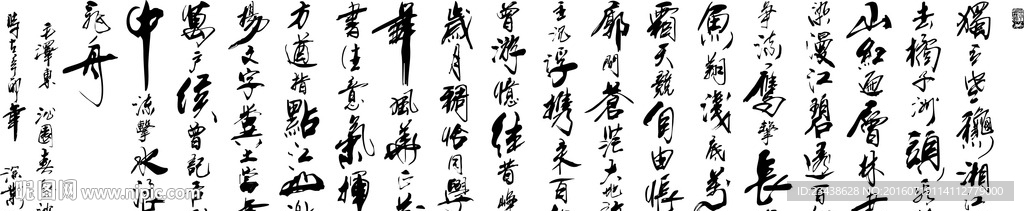 獨立寒穐湘江
去橘子洲頭看
山紅遍層林盡
染漫江碧透
爭流鷹擊長
魚翔淺底萬
霜天競自由悵
廓問蒼茫大地
主沉浮攜來百
曾游憶往昔崢
歲月稠恰同學
年風華正茂
書生意氣揮
方遒指點江山激
揚文字糞土當
萬戶侯曾記否
中流擊水浪
飛舟
毛澤東 沁園春 沙
時在辛卯年
昵图网 www.nipic.com